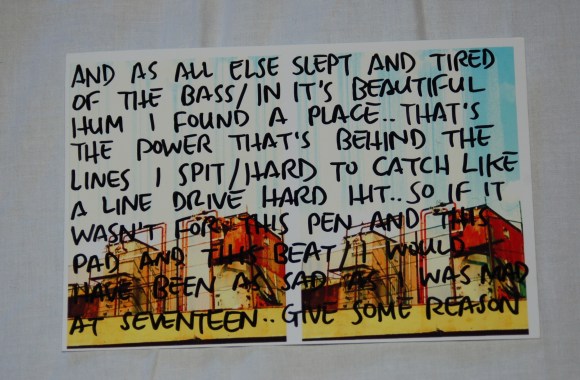 AND AS ALL ELSE SLEPT AND TIRED
OF THE BASS/IN IT'S BEAUTIFUL
HUM I FOUND A PLACE.. THAT'S
THE POWER THAT'S BEHIND THE
LINES I SPIT/HARD TO CATCH LIKE
A LINE DRIVE HARD HIT.. SO IF IT
WASN'T FOR THIS PEN AND THIS
PAD AND THIS BEAT/I WOULD
HAVE BEEN AS SAD AS I WAS MAD
AT SEVENTEEN.. GIVE SOME REASON